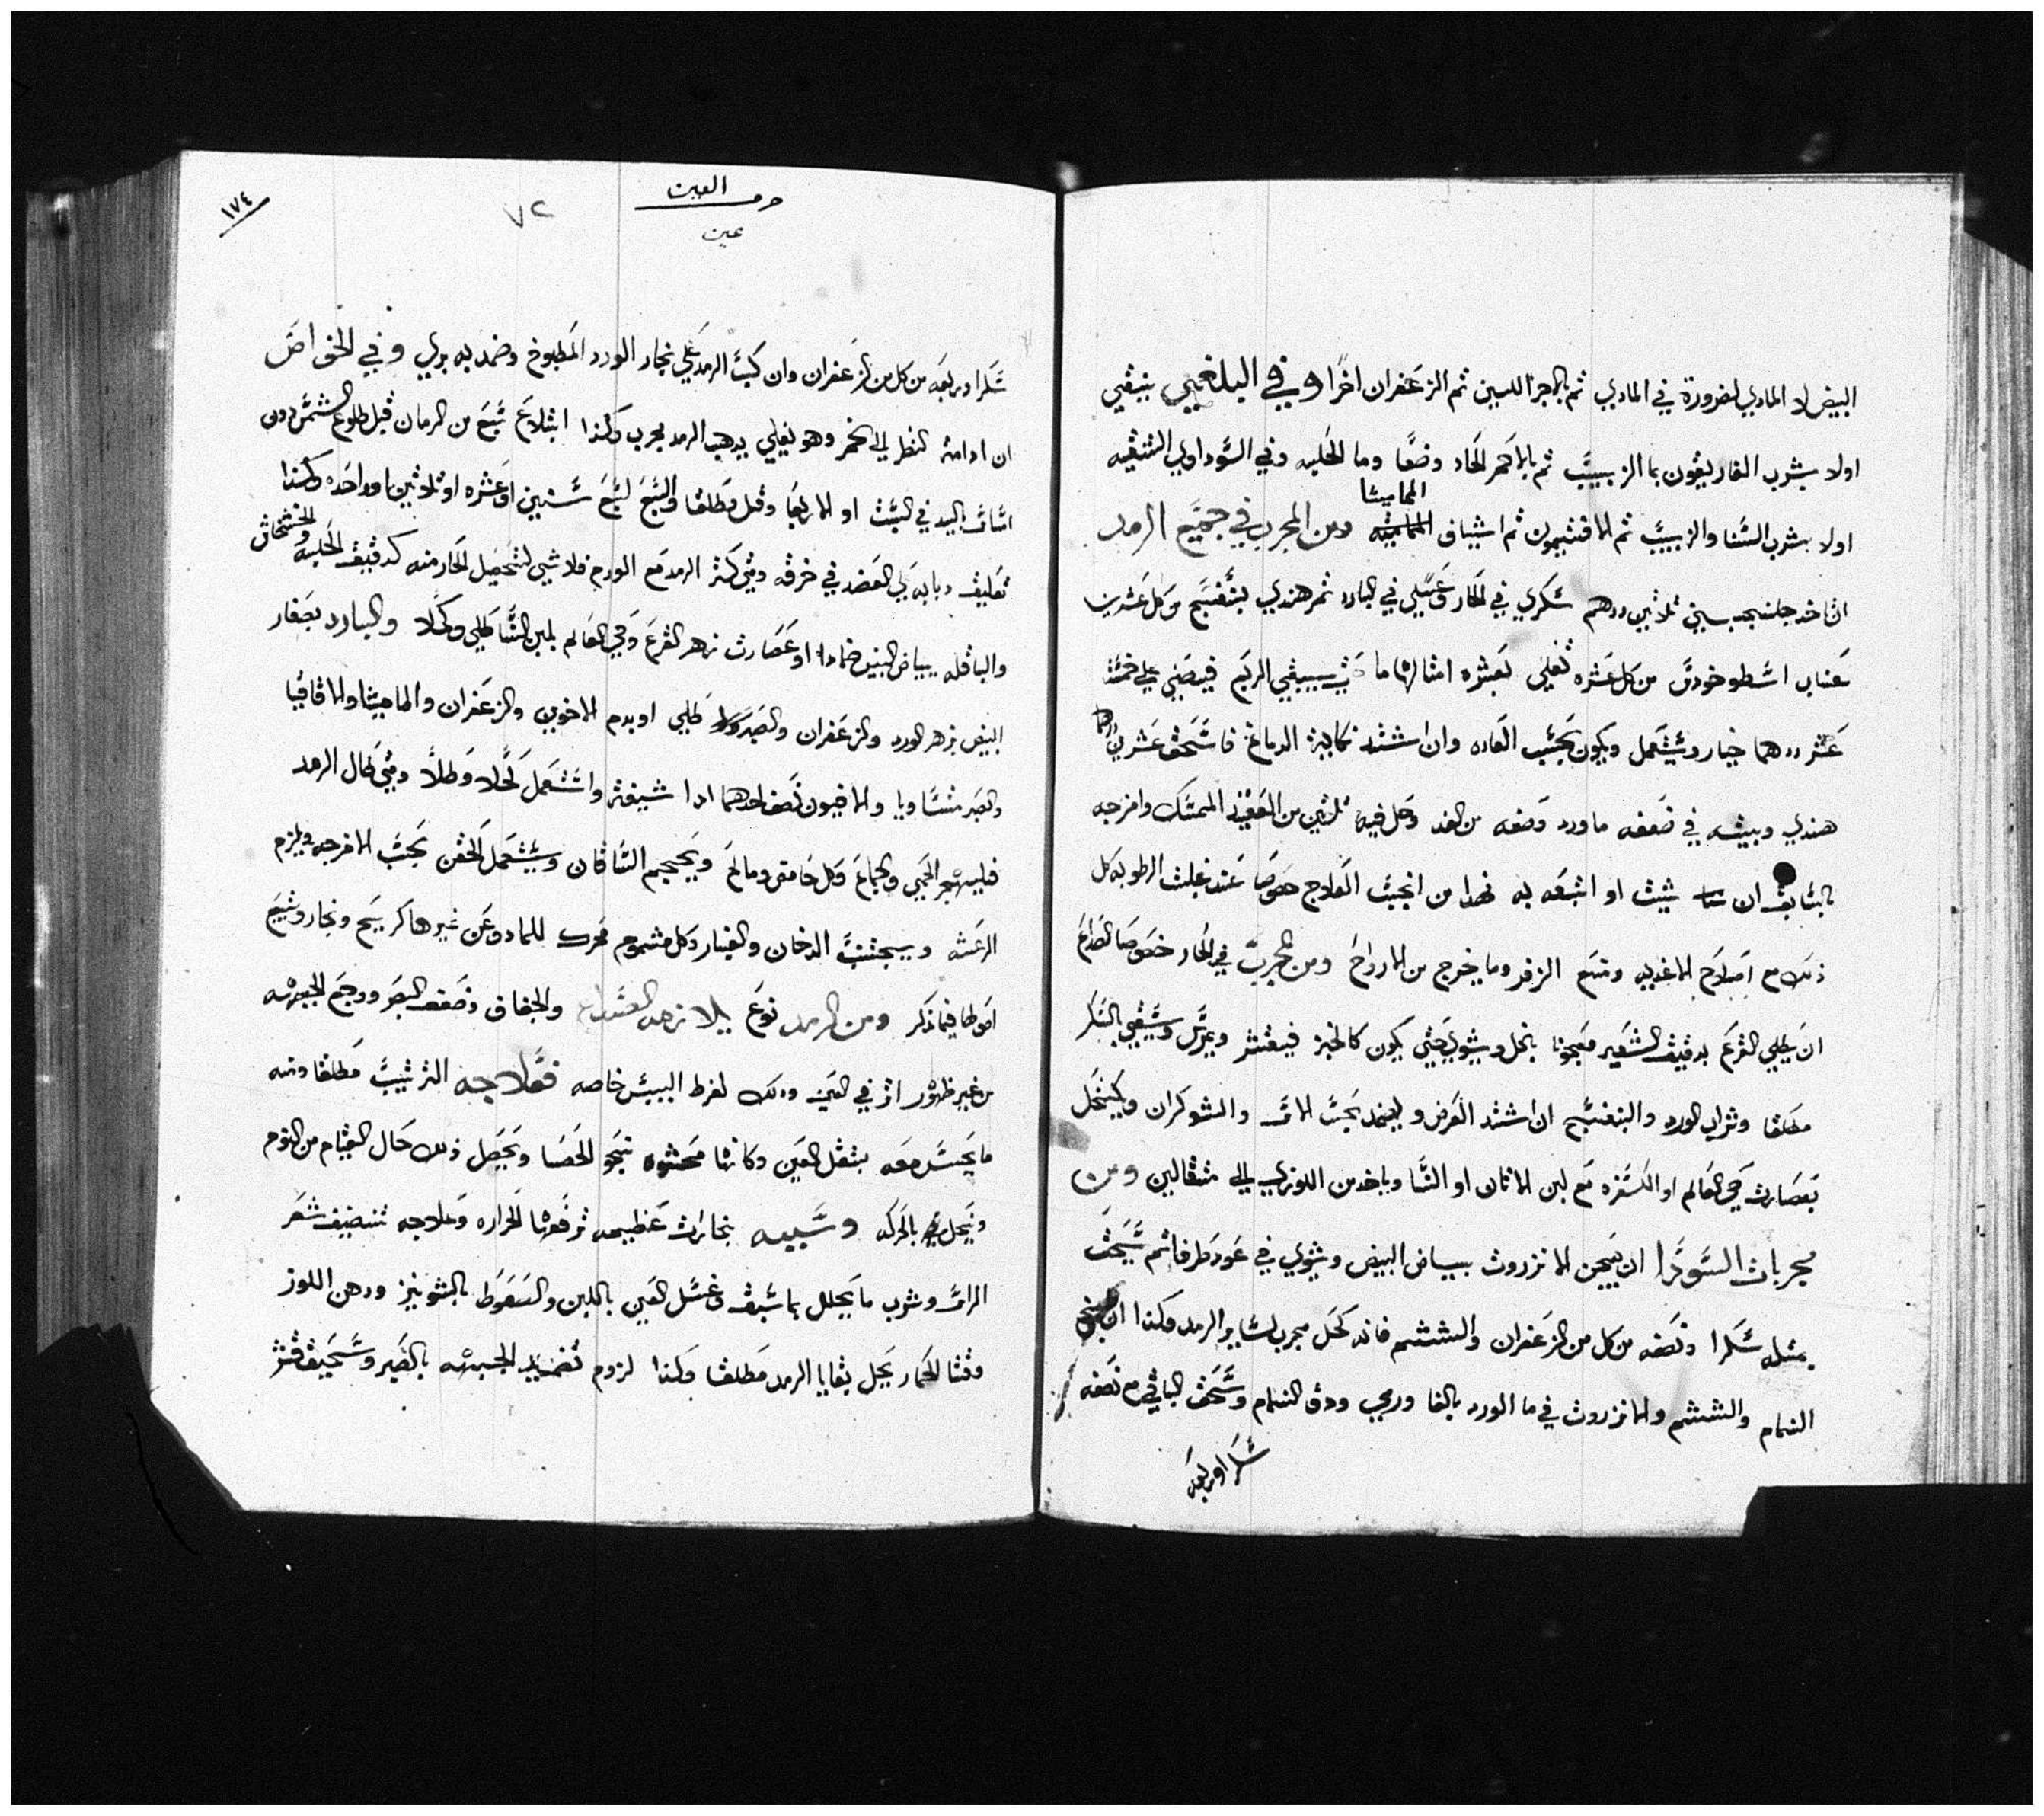 البيض لا المادي لضرورة في المادي ثم بالاجر اللبين ثم الزعفران اخرا وفي البلغمي ينبغي
اولا بشرب الغاريقون بما الزبيب ثم بالاحمر الحاد وضعا وما الحلبه وفي السوداوي التنقيه
الماميثا
اولا بشرب السنا والزبيب ثم الافتيمون ثم اشياف ومن المجرب في جميع الرمد
ان ياخد جلنجبين ثلاثين درهم سكري في الحار وعسلي في البارد تمر هندي بنفسج من كل عشرين
عناب اسطوخودس من كل عشره تغلي بعشره امثالها ما حتي يبقي الربع فيصفي علي خمسة
عشر درهما خيار ويستعمل ويكون بحسب العاده وان اشتد نكاية الدماغ فاسحق عشرين
هندي وبيته في ضعفه ماورد وصفه من الغد وحل فيه ثلثين من العقيد الممسك وامزجه
بالسابق ان شيت او اتبعه به فهدا من انجب العلاج خصوصا عند غلبت الرطوبه كل
ذلك مع اصلاح الاغديه ومنع الزفر وما يخرج من الارواح ومن المجرب في الحار خصوصا الصداع
ان يطلي القرع بدقيق الشعير معجونا بالخل ويشوي حتي يكون كالخبز فيقشر ويعزل ويسقي بالسكر
مطلقا وشراب الورد والبنفسج ان اشتد القرض ويضمد بحب الاس والشوكران ويكتحل
بعصارت حي العالم او الكسفره مع لبن الاتان او النسا وياخد من اللوزي الي مثقالين ومن
مجربات السودا ان يعجن الانزروت ببياض البيض ويشوي في عود طرفا ثم يسحق
بمثله سكرا ونصفه من كل من الزعفران والششم فانه كحل مجرب لساير الرمد وكذا ان
النمام والششم والانزروت في ما الورد بالغا ورمي ودق النمام وسحق الباقي مع نصفه
سكرا وربعه
حرف العين
عين
٧٢
١٧٤
سكرا وربعه من كل من الزعفران وان كب الرمد علي بخار الورد المطبوخ وضمد به بري وفي الخواص
ان ادامة النظر الي الخمر وهو يغلي يدهب الرمد مجرب وكذا ابتلاع سبع من الرمان قبل طلوع الشمس دون
امساك باليد في السبت او الاربعا وقيل مطلقا والسبع لسبع سنين او عشره او ثلاثين او واحده وكذا
تعليف دبابه علي العضد في خرقه ومتي كثر الرمد مع الورم فلا شي لتحصيل الحار منه كدقيق الحلبه والخشخاش
والباقله ببياض البيض ضمادا او عصارت زهر القرع وحي العالم بلبن النسا طلي وكحلا والبارد بصفار
البيض بزهر الورد والزعفران والصبر طلي او بدم الاخوين والزعفران والماميثا والاقاقيا
والصبر متساويا والافيون نصف احدهما ادا شيفت واستعمل كحلا وطلا ومتي طال الرمد
فليهجر الحمي والجماع وكل حامض ومالح ويحجم الساقان ويستعمل الحقن بحسب الامزجه ويلزم
الرعشه ويجتنب الدخان والغبار وكل مشموم محرك للماده وعن غيرها كريح وبخار وشيع
اصولها فيما ذكر ومن الرمد نوع يلازمه الصداع والجفاف وضعف البصر ووجع الجبهه
من غير ظهور اثر في العين ودلك لفرط اليبس خاصه فعلاجه الترتيب مطلقا ومنه
ما يحس معه بثقل العين وكانها محشوه بنحو الحصا ويحصل ذلك حال القيام من النوم
ويحل بالحركه وسببه بخارات عظيمه ترفعها الحراره وعلاجه تنضيف شعر
الراس وشرب ما يحلل بما سبق وغسل العين باللبن والسعوط بالشونيز ودهن اللوز
وقثا الحمار يحل بقايا الرمد مطلقا وكذا لزوم تضميد الجبهه بالصبر وسحيق قشر